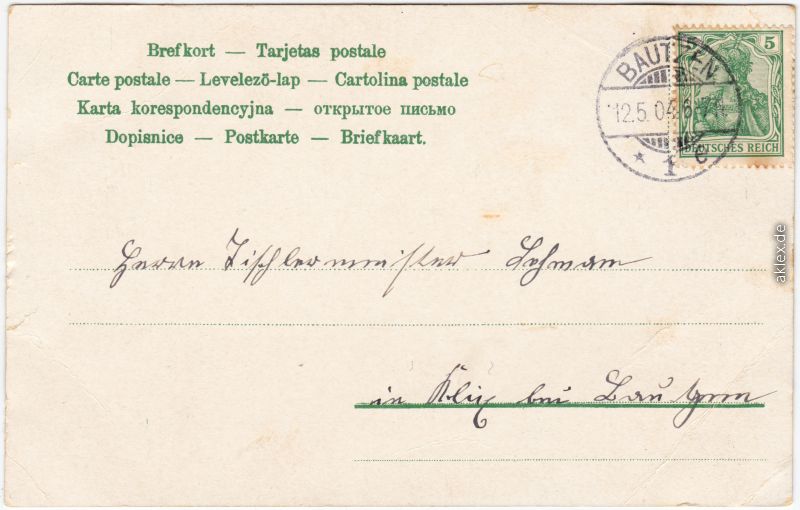 Brefkort — Tarjetas postale
Carte postale — Levelező-lap — Cartolina postale
Karta korespondencyjna — открытое письмо
Dopisnice — Postkarte — Briefkaart.
5
DEUTSCHES REICH
BAUTZEN
12.5.04.6
* 1 e
Herrn Tischlermeister Lehmann
in Klix bei Bautzen
aklex.de